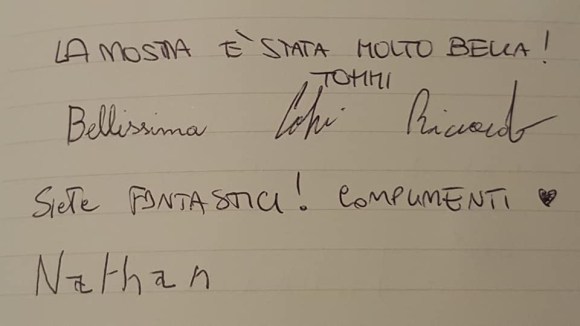 LA MOSTRA È STATA MOLTO BELLA!
TOMMI
Bellissima Riccardo
SIETE FANTASTICI! COMPLIMENTI ♥
Nathan